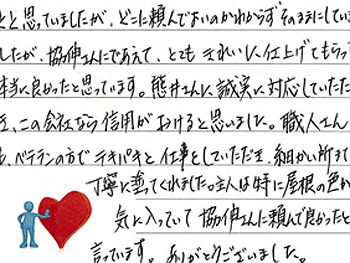 と思っていましたが、どこに頼んでよいのかわからずそのままにしてい
したが、協伸さんにであえて、とてもきれいに仕上げてもらっ
本当に良かったと思っています。熊井さんに誠実に対応していただ
き、この会社なら信用がおけると思いました。職人さん
も、ベテランの方でテキパキと仕事をしていただき、細かい所まで
丁寧に塗ってくれました。主人は特に屋根の色が
気に入っていて協伸さんに頼んで良かったと
言っています。ありがとうございました。